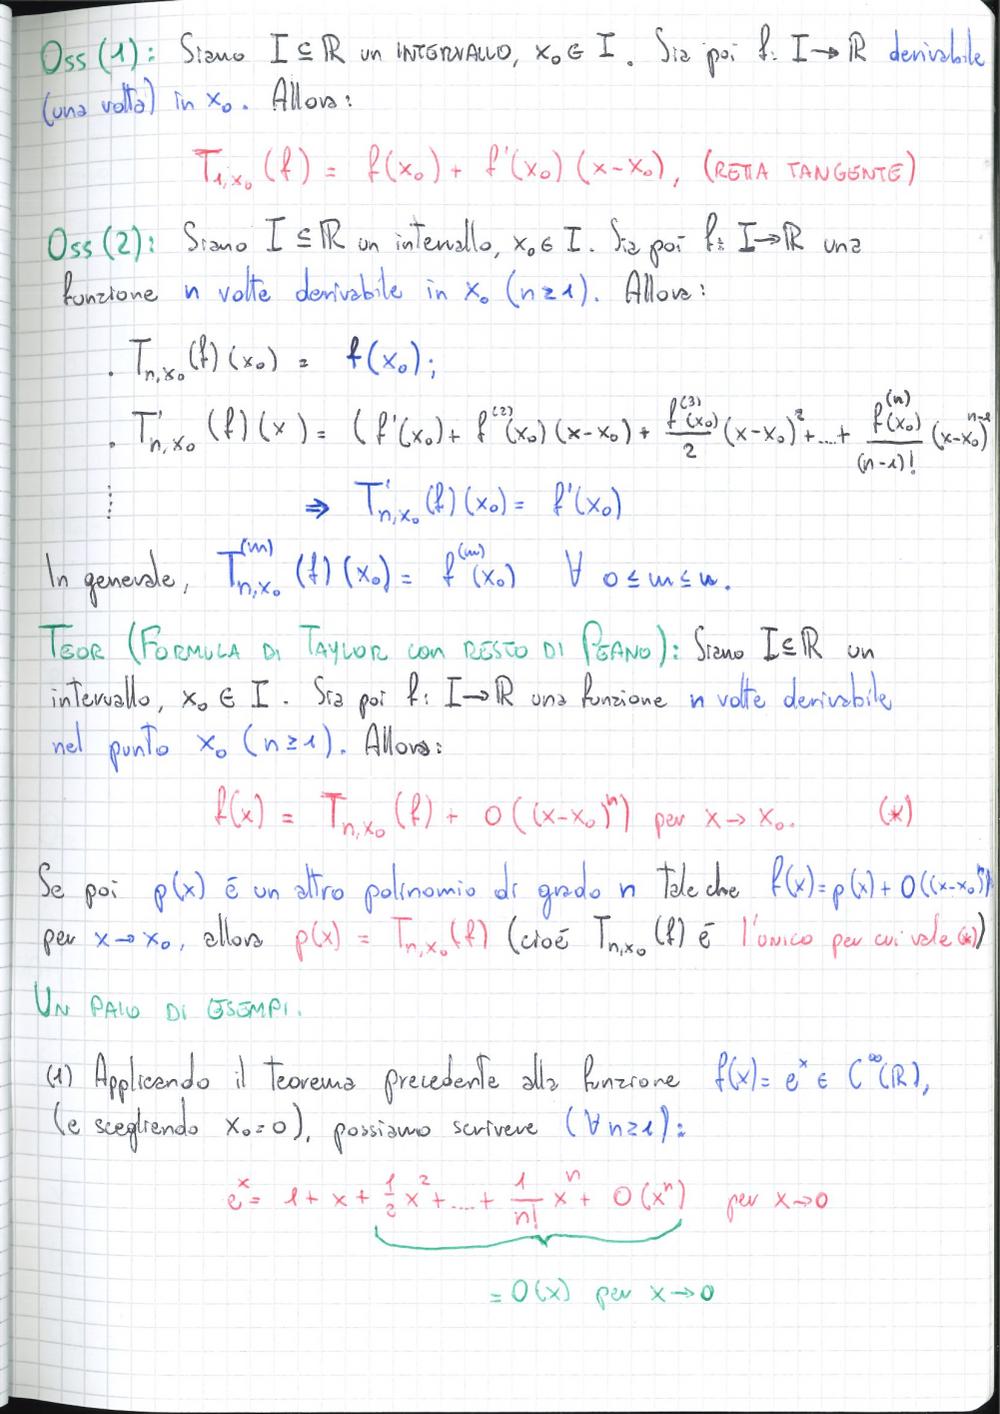 Oss (1): Siano I ⊆ ℝ un INTERVALLO, x₀ ∈ I. Sia poi f: I → ℝ derivabile
(una volta) in x₀. Allora:
T₁,ₓ₀ (f) = f(x₀) + f'(x₀) (x-x₀), (RETTA TANGENTE)
Oss (2): Siano I ⊆ ℝ un intervallo, x₀ ∈ I. Sia poi f: I → ℝ una
funzione n volte derivabile in x₀ (n ≥ 1). Allora:
. T_{n,x₀} (f) (x₀) = f(x₀);
. T'_{n,x₀} (f) (x) = (f'(x₀) + f^{(2)}(x₀) (x-x₀) + \frac{f^{(3)}(x₀)}{2} (x-x₀)² + .... + \frac{f^{(n)}(x₀)}{(n-1)!} (x-x₀)^{n-1}
⋮ ⇒ T'_{n,x₀} (f) (x₀) = f'(x₀)
In generale, T^{(m)}_{n,x₀} (f) (x₀) = f^{(m)}(x₀) ∀ 0 ≤ m ≤ n.
TEOR (FORMULA DI TAYLOR CON RESTO DI PEANO): Siano I ⊆ ℝ un
intervallo, x₀ ∈ I. Sia poi f: I → ℝ una funzione n volte derivabile
nel punto x₀ (n ≥ 1). Allora:
f(x) = T_{n,x₀} (f) + o((x-x₀)^n) per x → x₀. (*)
Se poi p(x) é un altro polinomio di grado n tale che f(x) = p(x) + o((x-x₀)^n)
per x → x₀, allora p(x) = T_{n,x₀} (f) (cioé T_{n,x₀} (f) é l'unico per cui vale (*))
UN PAIO DI ESEMPI.
(1) Applicando il teorema precedente alla funzione f(x) = e^x ∈ C^∞(ℝ),
(e scegliendo x₀ = 0), possiamo scrivere (∀ n ≥ 1):
e^x = 1 + x + \frac{1}{2} x² + .... + \frac{1}{n!} x^n + o(x^n) per x → 0
= o(x) per x → 0